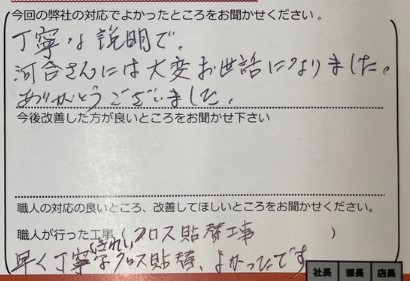 今回の弊社の対応でよかったところをお聞かせください。
丁寧な説明で、
河合さんには大変お世話になりました。
ありがとうございました。
今後改善した方が良いところをお聞かせ下さい
職人の対応の良いところ、改善してほしいところをお聞かせください。
職人が行った工事（クロス貼替工事）
きれい
早く丁寧なクロス貼替、よかったです
社長 部長 店長